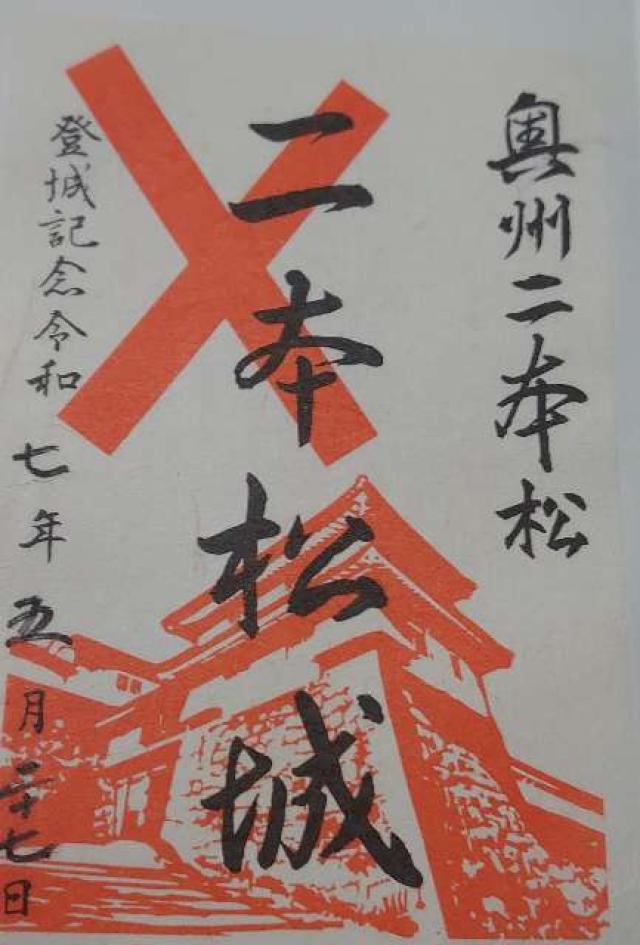 奥州二本松
二本松城
登城記念令和七年五月二十七日